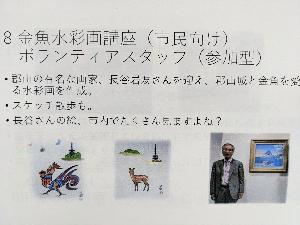 8 金魚水彩画講座（市民向け）
ボランティアスタッフ（参加型）
•郡山の有名な画家、長谷岩友さんを迎え、郡山城と金魚を愛
る水彩画を作成。
•スケッチ散歩も。
•長谷さんの絵、市内でたくさん見ますよね？